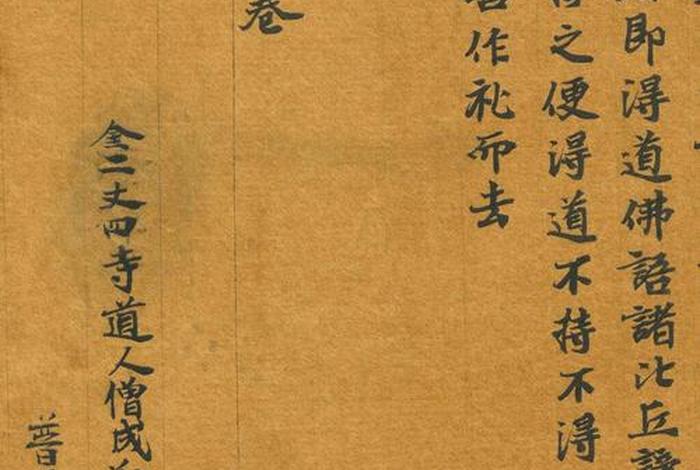 即得道佛語諸比丘
之便得道不持不得
作礼而去
卷
二丈四寺道人僧成
普